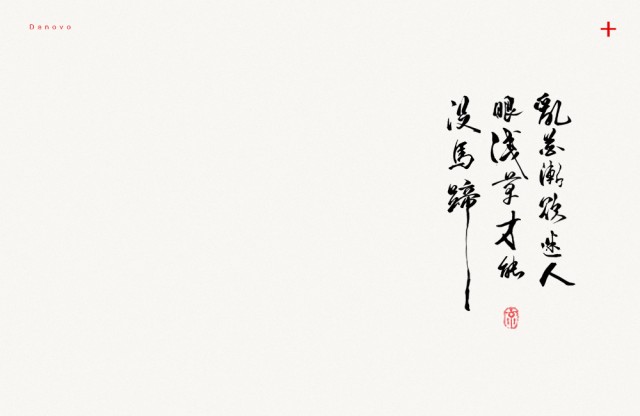 Danovo
亂花漸欲迷人
眼淺草才能
沒馬蹄